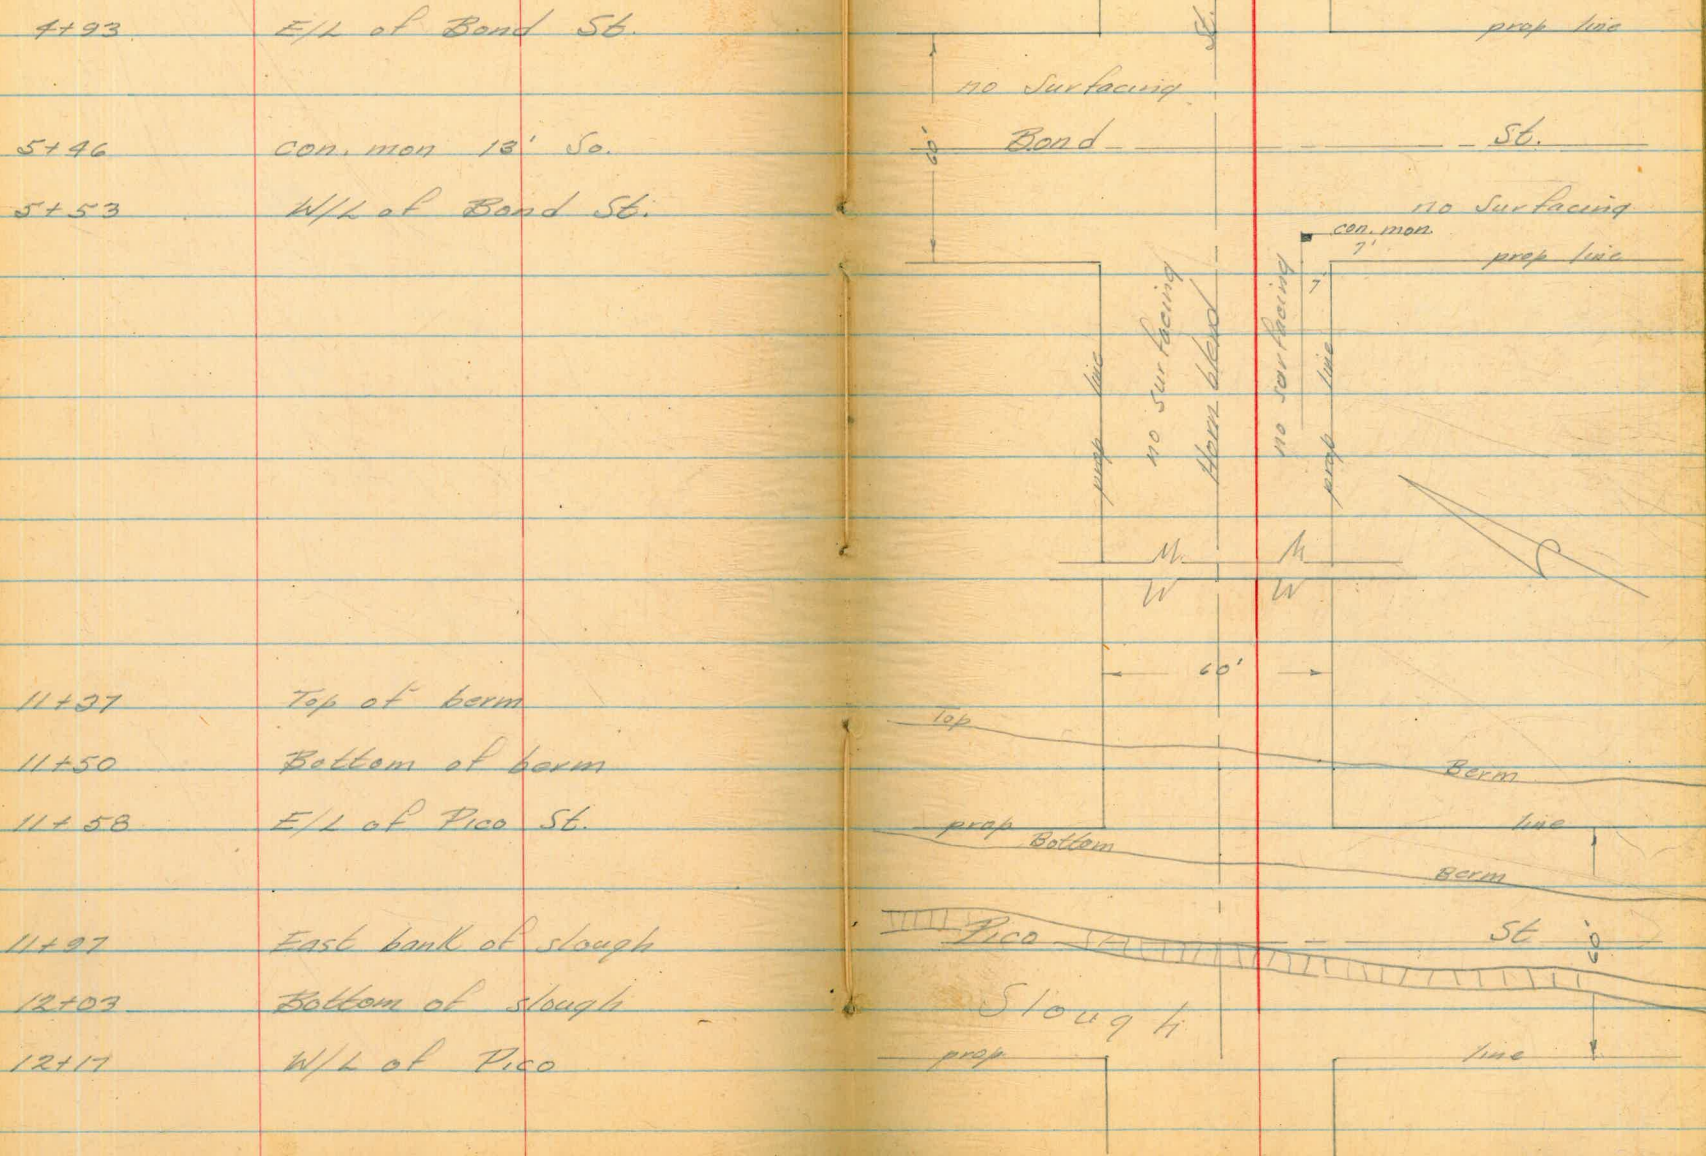 4+93 E/L of Bond St.
5+46 con. mon 13' So.
5+53 W/L of Bond St.
11+37 Top of berm
11+50 Bottom of berm
11+58 E/L of Pico St.
11+97 East bank of slough
12+03 Bottom of slough
12+17 W/L of Pico
St.
prop line
no Surfacing
60'
Bond St.
no Surfacing
con. mon.
7'
prop line
7
prop line
no surfacing
Horn blend
no surfacing
prop line
60'
Top
Berm
prop line
Bottom
Berm
Pico St
60'
Slough
prop line